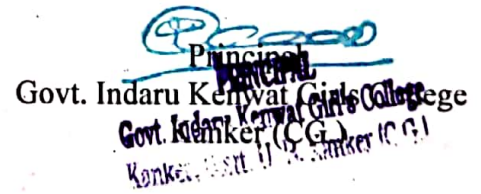 Principal
Govt. Indaru Kenwat Girls College
Kanker (C.G.)
PRINCIPAL
Govt. Indaru Kenwat Girl's College
Kanker (C.G.)